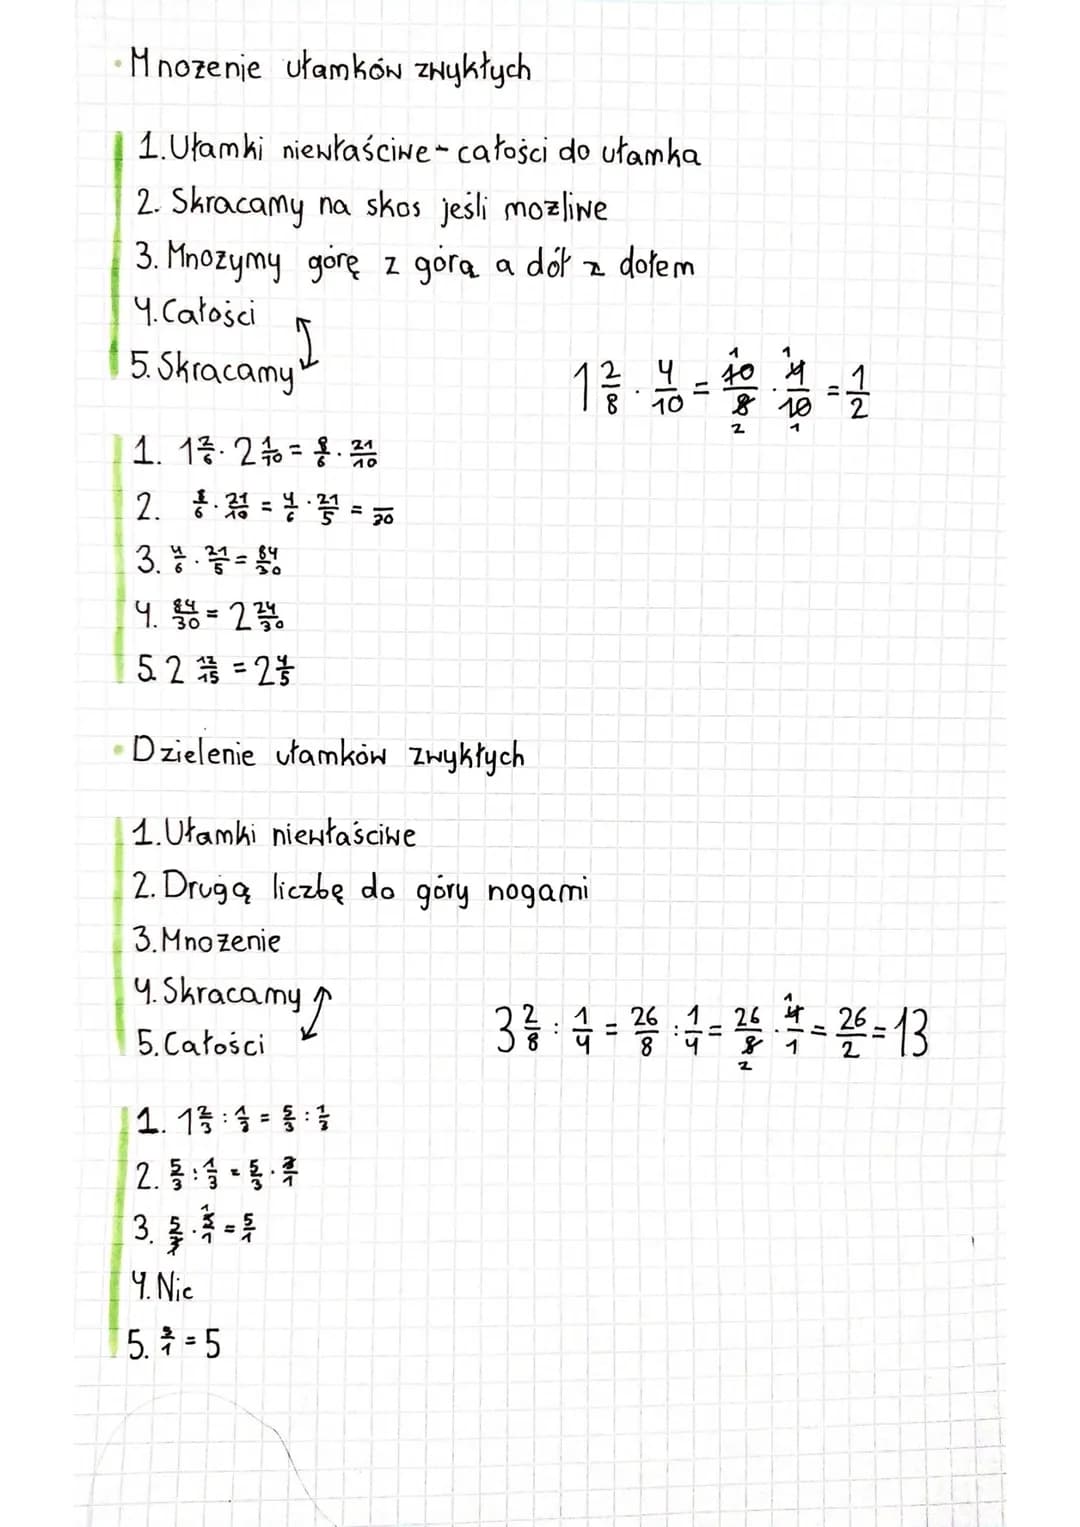 • Mnożenie ułamków zwykłych
1. Ułamki niewłaściwe - całości do ułamka
2. Skracamy na skos jeśli możliwe
3. Mnożymy górę z górą a dół z dołem
4. Całości
5. Skracamy
1 2/8 · 4/10 = 10/8 · 4/10 = 1/2
1. 1 2/6 · 2 1/10 = 8/6 · 21/10
2. 8/6 · 21/10 = 4/6 · 21/5 = /30
3. 4/6 · 21/5 = 84/30
4. 84/30 = 2 24/30
5. 2 12/15 = 2 4/5
• Dzielenie ułamków zwykłych
1. Ułamki niewłaściwe
2. Drugą liczbę do góry nogami
3. Mnożenie
4. Skracamy
5. Całości
3 2/8 : 1/4 = 26/8 : 1/4 = 26/8 · 4/1 = 26/2 = 13
1. 1 2/3 : 1/3 = 5/3 : 1/3
2. 5/3 : 1/3 = 5/3 · 3/1
3. 5/3 · 3/1 = 5/1
4. Nic
5. /1 = 5